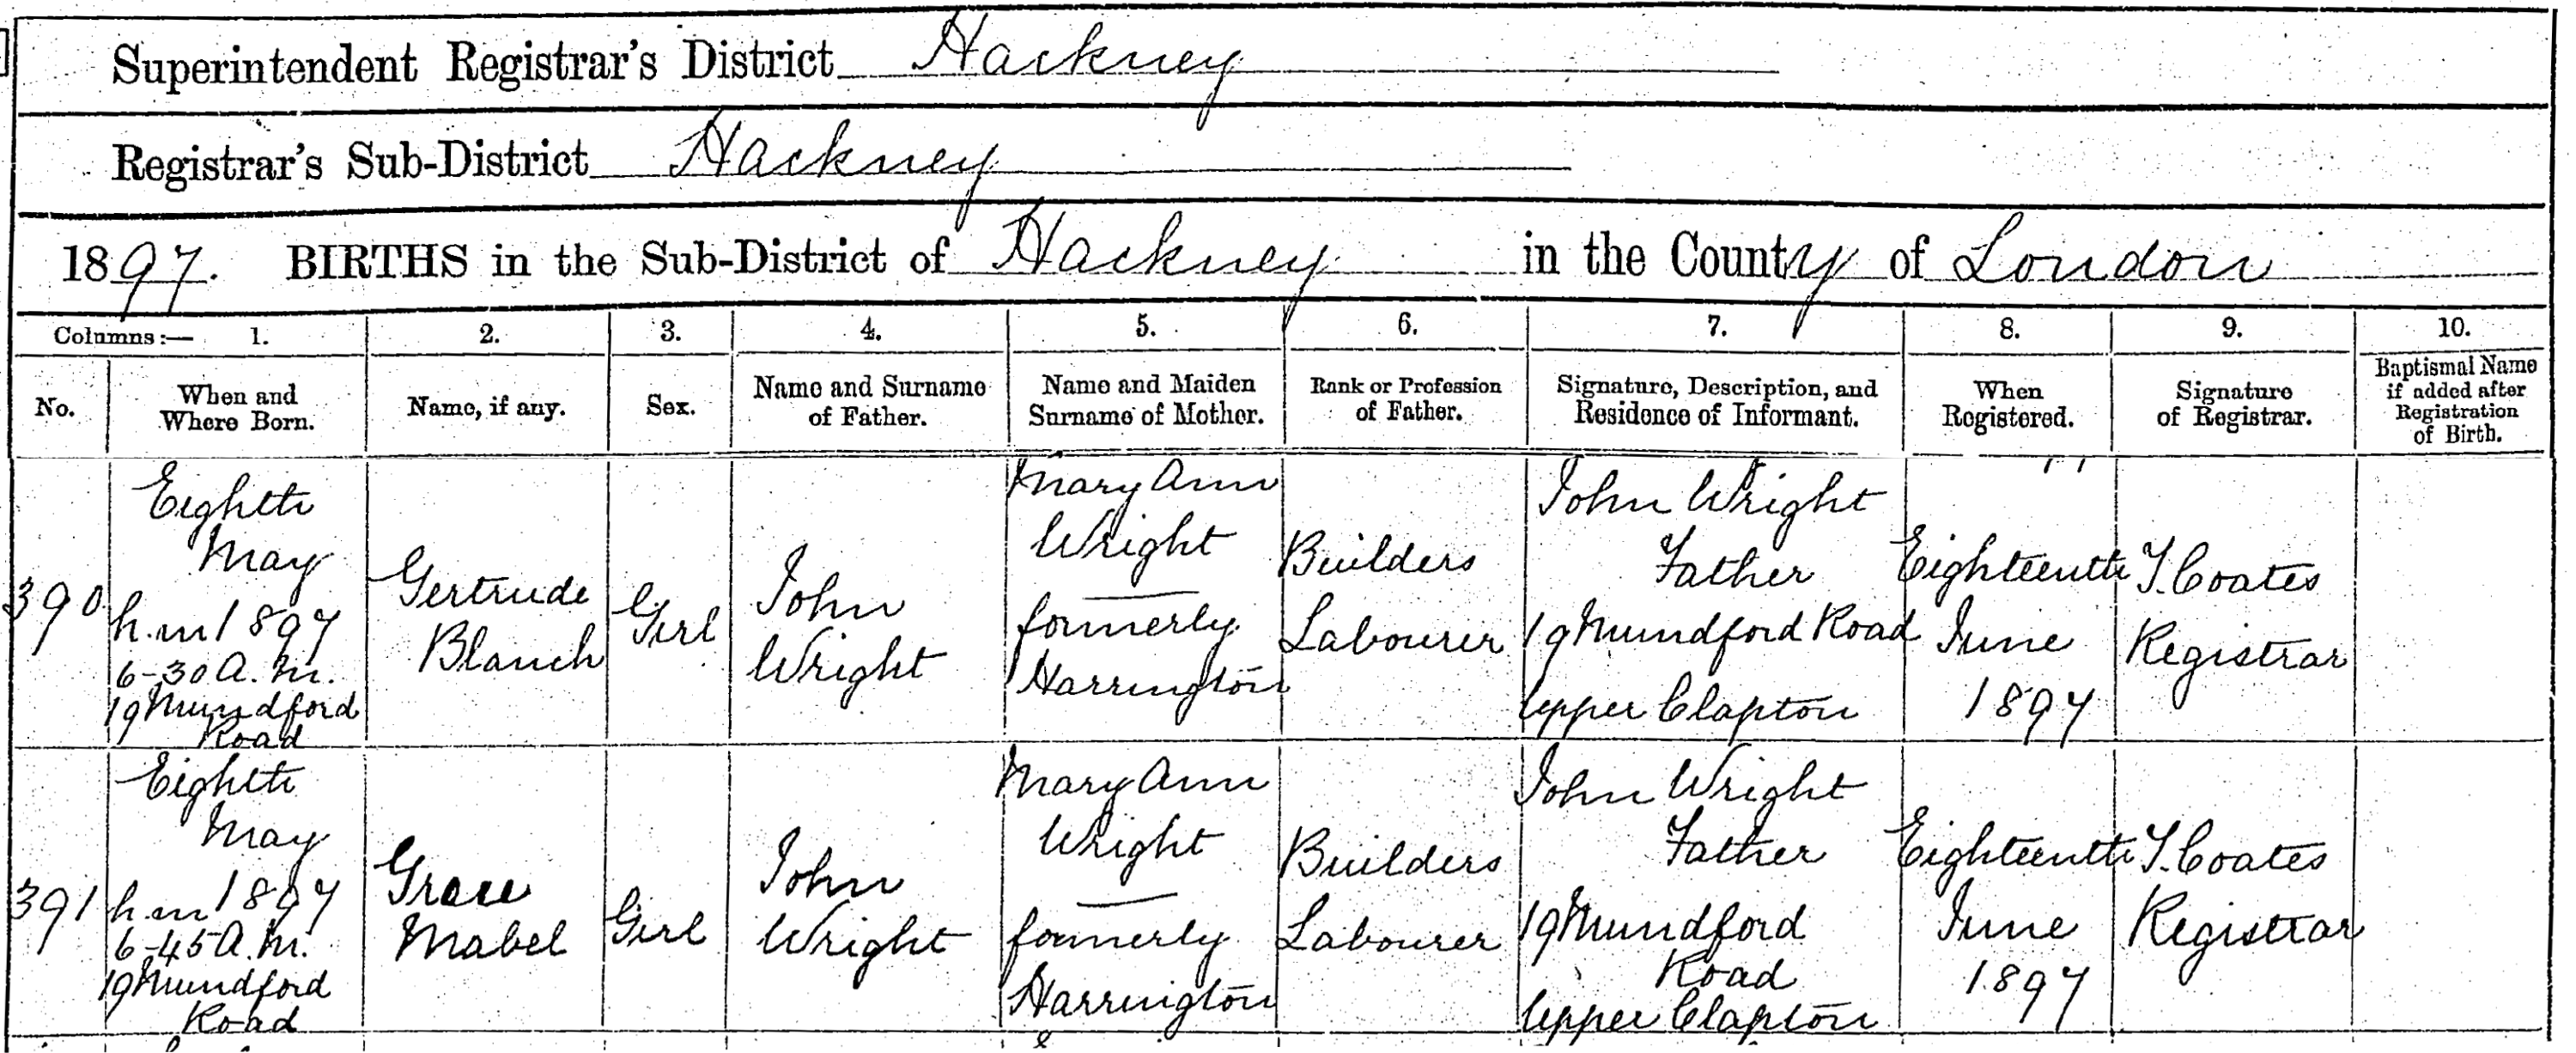 Superintendent Registrar's District Hackney
Registrar's Sub-District Hackney
1897. BIRTHS in the Sub-District of Hackney in the County of London
Columns:— 1. 2. 3. 4. 5. 6. 7. 8. 9. 10.
No.
When and
Where Born.
Name, if any.
Sex.
Name and Surname
of Father.
Name and Maiden
Surname of Mother.
Rank or Profession
of Father.
Signature, Description, and
Residence of Informant.
When
Registered.
Signature
of Registrar.
Baptismal Name
if added after
Registration
of Birth.
390
Eighth
May
h.m 1897
6-30 A.M.
19 Mundford
Road
Gertrude
Blanch
Girl
John
Wright
Mary Ann
Wright
formerly
Harrington
Builders
Labourer
John Wright
Father
19 Mundford Road
Upper Clapton
Eighteenth
June
1897
T. Coates
Registrar
391
Eighth
May
h.m 1897
6-45 A.M.
19 Mundford
Road
Grace
Mabel
Girl
John
Wright
Mary Ann
Wright
formerly
Harrington
Builders
Labourer
John Wright
Father
19 Mundford
Road
Upper Clapton
Eighteenth
June
1897
T. Coates
Registrar